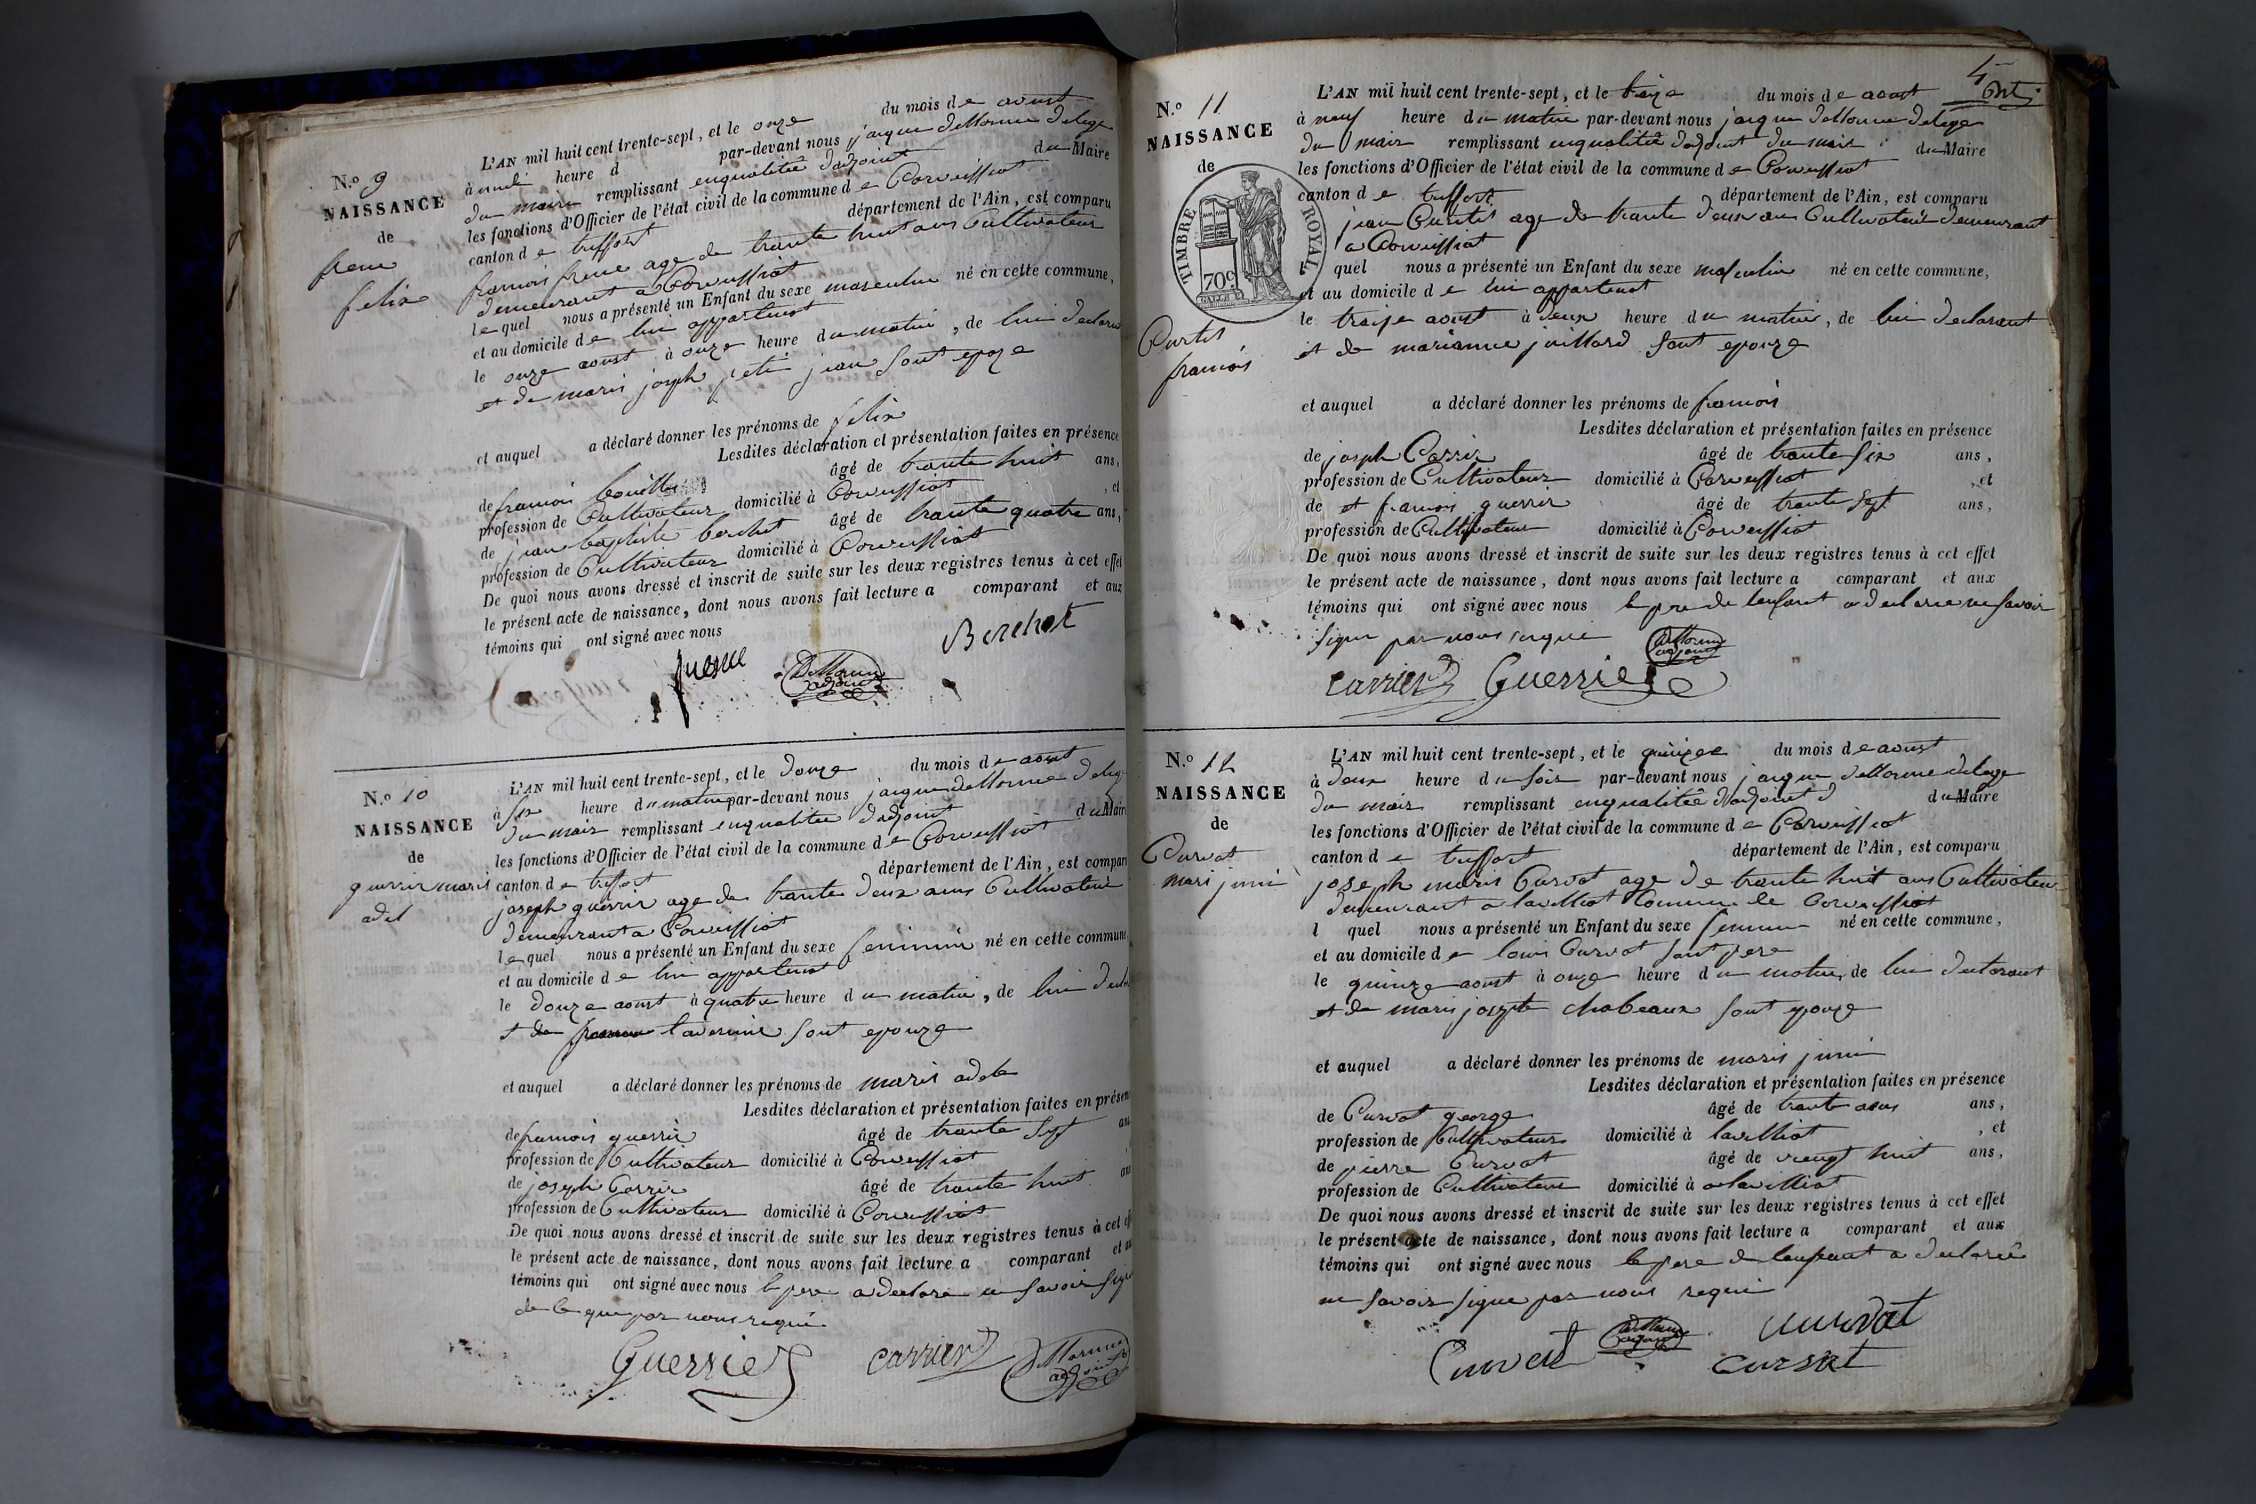 N.o 9
NAISSANCE
de
frene
felix
L'AN mil huit cent trente-sept, et le onze du mois de aoust
à midi heure d par-devant nous jaque dellorme delege
du maire remplissant enqualitée dadjoint du Maire
les fonctions d'Officier de l'état civil de la commune de Corveissiat
canton de treffort département de l'Ain, est comparu
francois frene age de trante huit ans Cultivateur
demeurant a Corveissiat
lequel nous a présenté un Enfant du sexe masculin né en cette commune,
et au domicile de lui appartenot
le onze aoust à onze heure du matin, de lui declarant
et de marie joseph petit jean sont epoze
et auquel a déclaré donner les prénoms de felix
Lesdites déclaration et présentation faites en présence
de francois âgé de trante huit ans,
profession de Cultivateur domicilié à Corveissiat, et
de jean baptiste berchot âgé de trante quatre ans,
profession de Cultivateur domicilié à Corveissiat
De quoi nous avons dressé et inscrit de suite sur les deux registres tenus à cet effet
le présent acte de naissance, dont nous avons fait lecture a comparant et aux
témoins qui ont signé avec nous
Berchot
frene
Dellorme
adjoint
N.o 10
NAISSANCE
de
guerrir marie
adel
L'AN mil huit cent trente-sept, et le douze du mois de aoust
à six heure du matin par-devant nous jaque dellorme deleg
du maire remplissant enqualitée dadjoint du Maire
les fonctions d'Officier de l'état civil de la commune de Corveissiat
canton de treffort département de l'Ain, est compar
joseph guerrir age de trante deux ans Cultivateur
demeurant a Corveissiat
lequel nous a présenté un Enfant du sexe feminin né en cette commune
et au domicile de lui appartenot
le douze aoust à quatre heure du matin, de lui decla
et de sont epouze
et auquel a déclaré donner les prénoms de marie adele
Lesdites déclaration et présentation faites en présen
de francois guerrir âgé de trante sept an
profession de Cultivateur domicilié à Corveissiat
de joseph Carrir âgé de trante huit an
profession de Cultivateur domicilié à Corveissiat
De quoi nous avons dressé et inscrit de suite sur les deux registres tenus à cet ef
le présent acte de naissance, dont nous avons fait lecture a comparant et au
témoins qui ont signé avec nous le pere a declare ne savoir signe
de ce que par nous requi
Guerrier carrier Dellorme
adjoint
4
N.o 11
NAISSANCE
de
TIMBRE ROYAL
70c
Curtit
francois
L'AN mil huit cent trente-sept, et le traize du mois de aoust
à neuf heure du matin par-devant nous jaque dellorme delege
du maire remplissant enqualitée dadjoint du maire du Maire
les fonctions d'Officier de l'état civil de la commune de Corveissiat
canton de treffort département de l'Ain, est comparu
jean Curtit age de trante deux ans Cultivateur demeurant
a Corveissiat
l quel nous a présenté un Enfant du sexe masculin né en cette commune,
et au domicile de lui appartenot
le traize aoust à deux heure du matin, de lui declarant
et de marianne juillard sont epouze
et auquel a déclaré donner les prénoms de francois
Lesdites déclaration et présentation faites en présence
de joseph Carrir âgé de trante six ans,
profession de Cultivateur domicilié à Corveissiat, et
de et francois guerrir âgé de trante sept ans,
profession de Cultivateur domicilié à Corveissiat
De quoi nous avons dressé et inscrit de suite sur les deux registres tenus à cet effet
le présent acte de naissance, dont nous avons fait lecture a comparant et aux
témoins qui ont signé avec nous le pre de lenfant a declare ne savoir
signe par nous requi
Dellorme
adjoint
carrier Guerrier
N.o 12
NAISSANCE
de
Curvat
mari jimi
L'AN mil huit cent trente-sept, et le quinze du mois de aoust
à deux heure du soir par-devant nous jaque dellorme delege
du maire remplissant enqualitée dadjoint d du Maire
les fonctions d'Officier de l'état civil de la commune de Corveissiat
canton de treffort département de l'Ain, est comparu
joseph marie Curvat age de trante huit ans Cultivateur
demeurant a lavilliat Commune de Corveissiat
l quel nous a présenté un Enfant du sexe feminin né en cette commune,
et au domicile de louis Curvat sont pere
le quinze aoust à onze heure du matin, de lui declarant
et de marie josephe chabeaux sont epouze
et auquel a déclaré donner les prénoms de marie jimi
Lesdites déclaration et présentation faites en présence
de Curvat george âgé de trante ans,
profession de Cultivateur domicilié à lavilliat, et
de pierre Curvat âgé de vengt huit ans,
profession de Cultivateur domicilié à a lavilliat
De quoi nous avons dressé et inscrit de suite sur les deux registres tenus à cet effet
le présent acte de naissance, dont nous avons fait lecture a comparant et aux
témoins qui ont signé avec nous le pere de lenfant a declaré
ne savoir signe par nous requi
Dellorme
adjoint
curvat